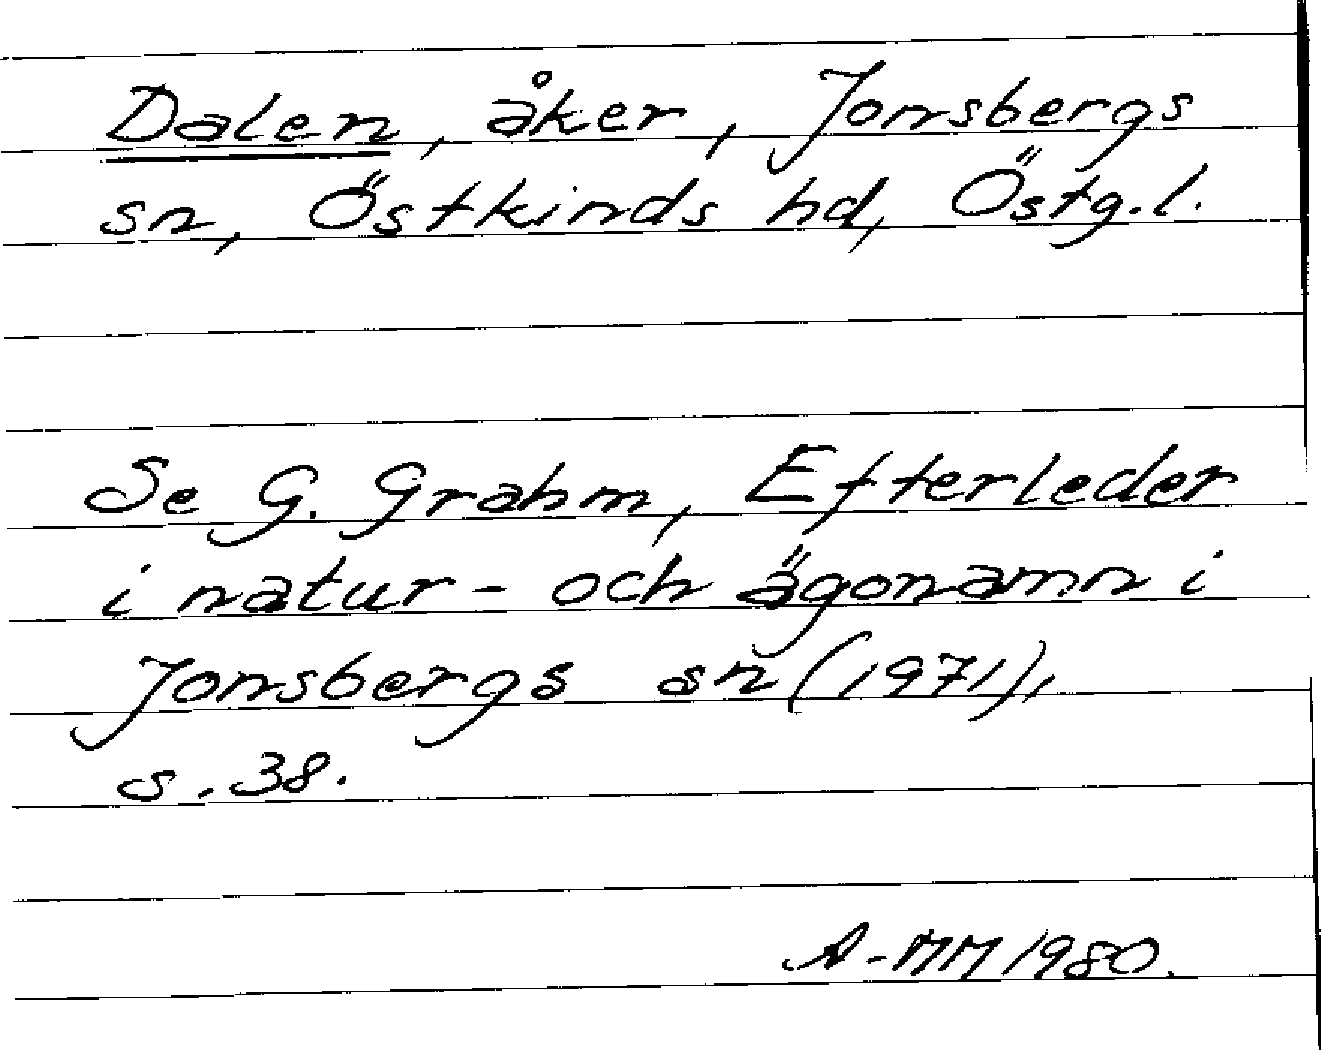 Dalen, åker, Jonsbergs
sn, Östkinds hd, Östg.l.
Se G. Grahm, Efterleder
i natur- och ägonamn i
Jonsbergs sn (1971),
s. 38.
A-MM 1980.